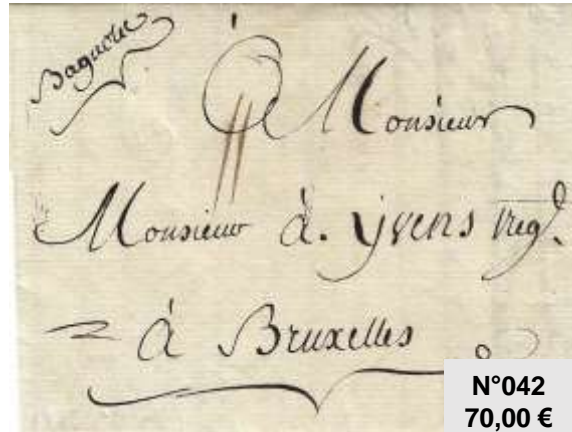 Baguette
À Monsieur
Monsieur à. yvens Neg.
à Bruxelles
N°042
70,00 €